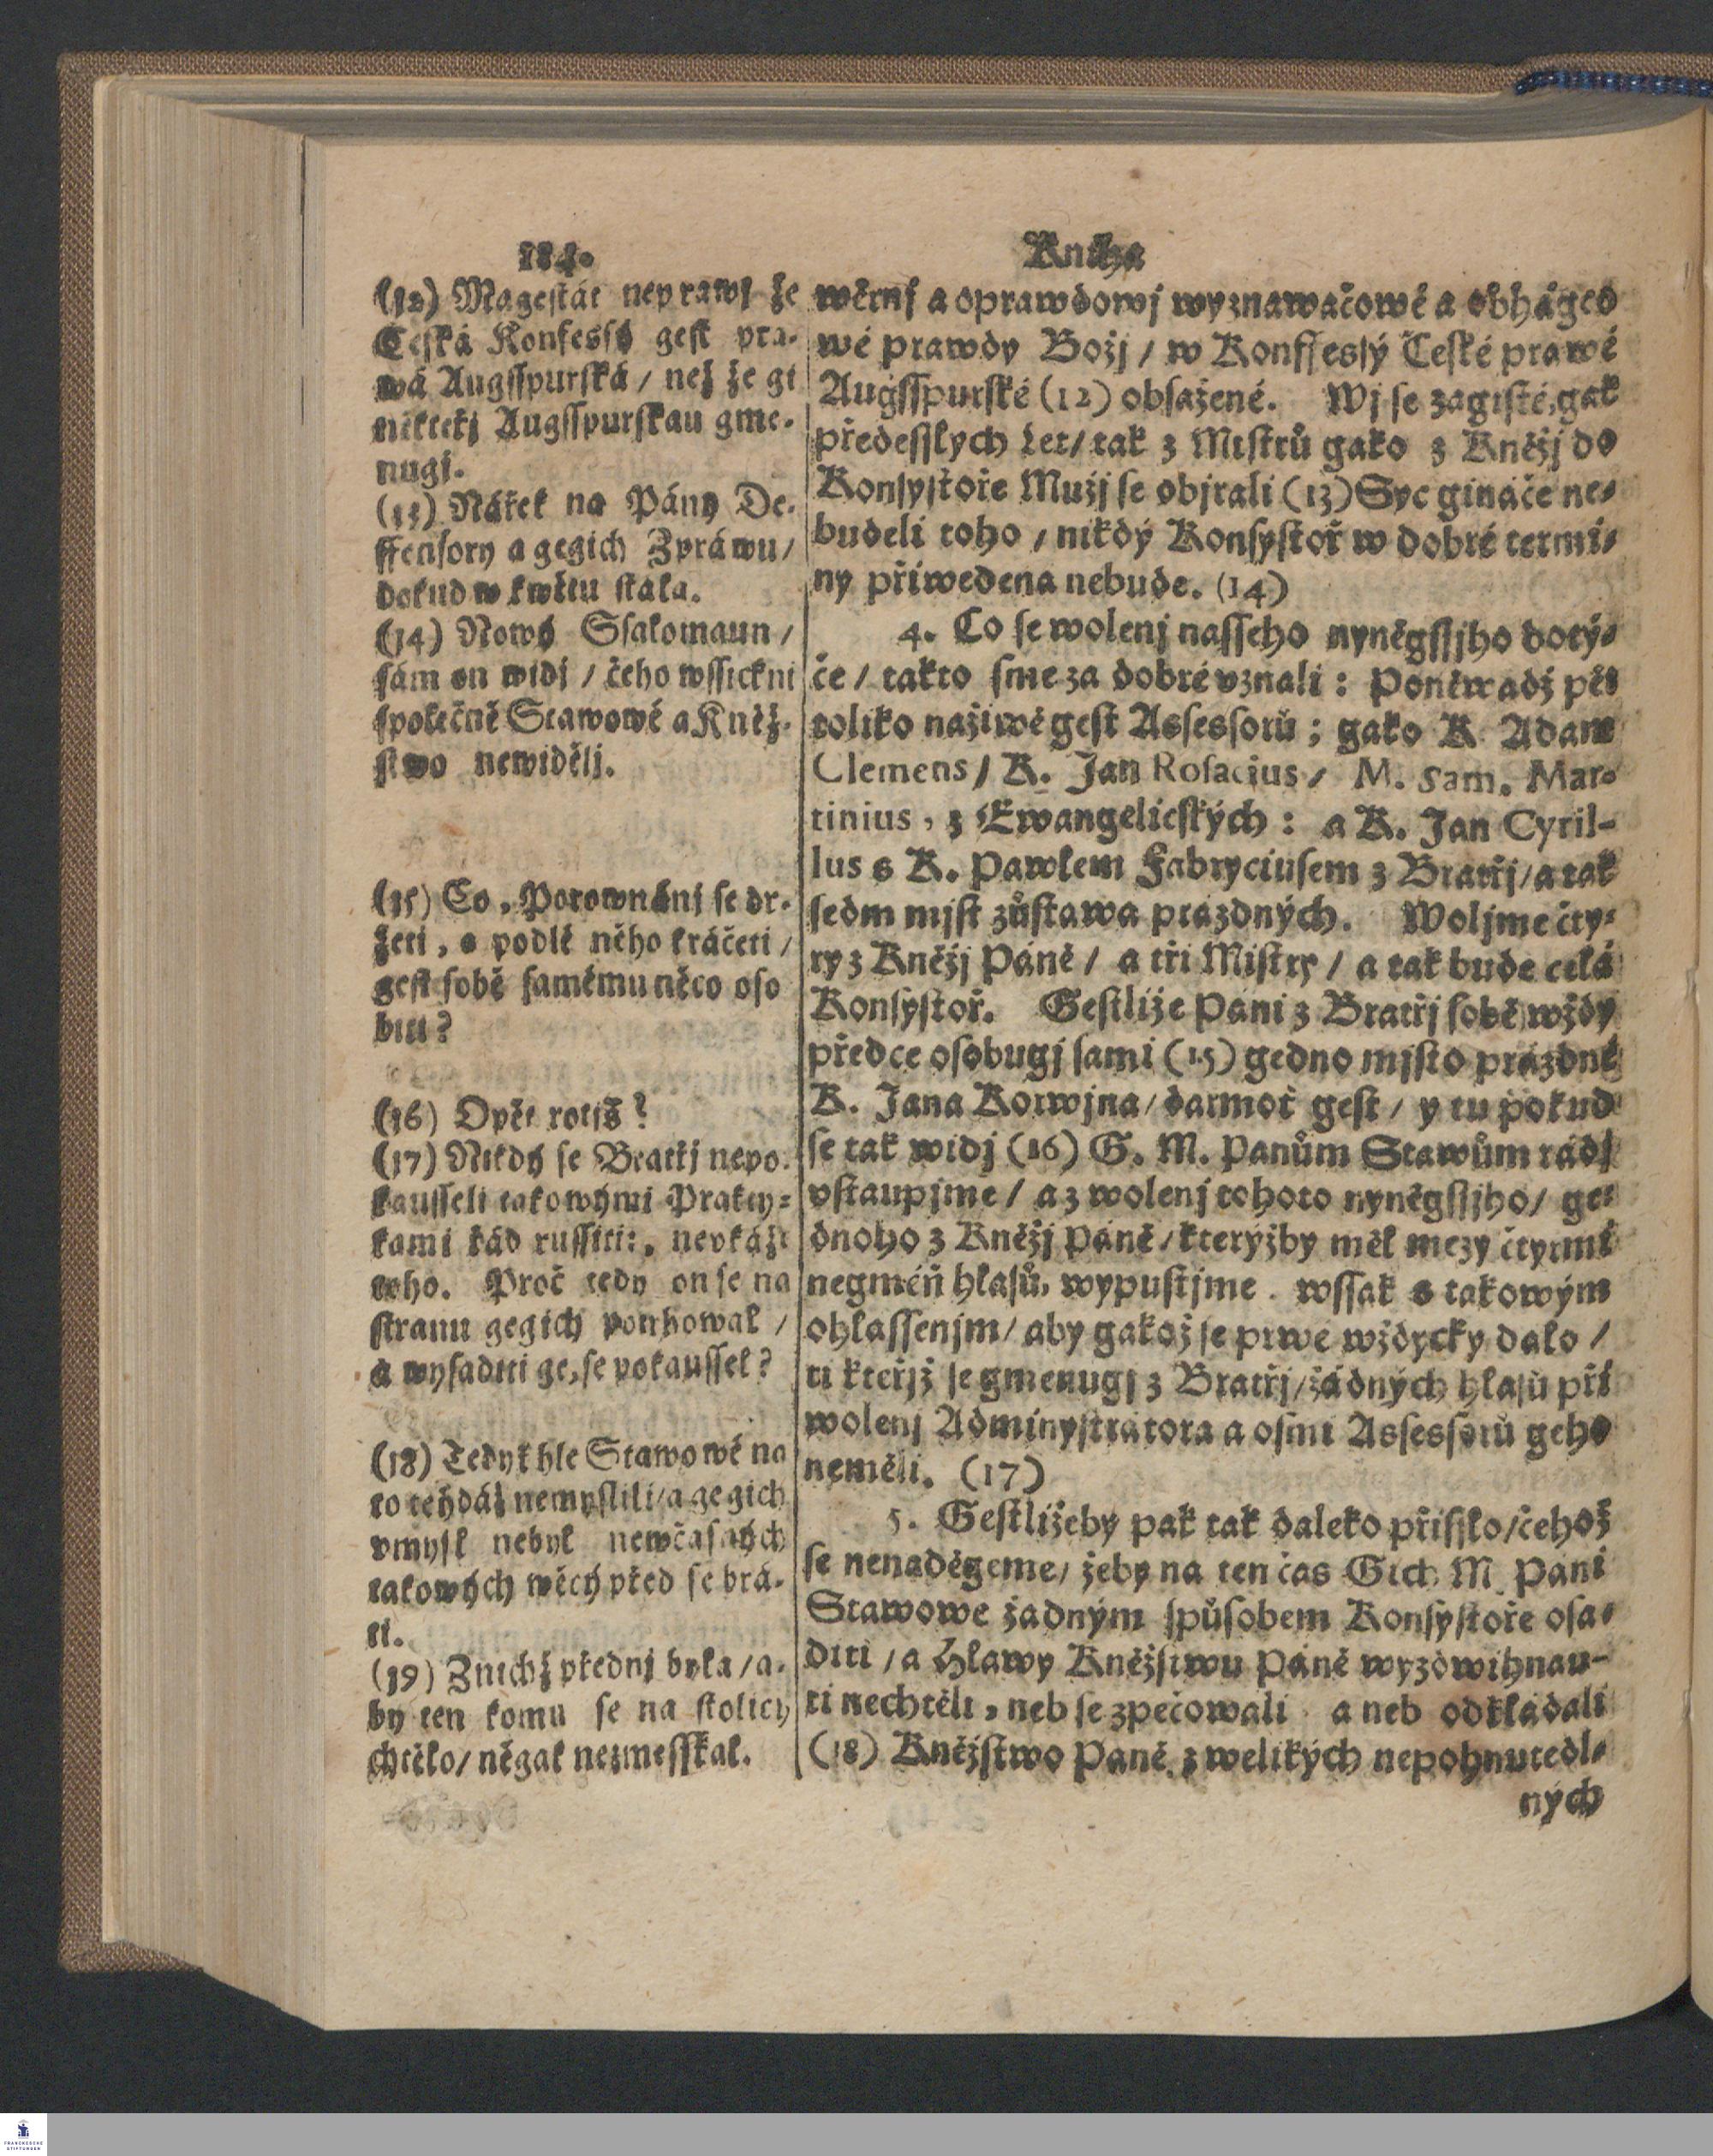 184.
Kniha
(12) Magestát neprawj že
Česká Konfessý gest pra-
wá Augsspurská / než že gi
někteřj Augsspurskau gme-
nugj.
(13) Nářek na Pány De-
ffensory a gegich Zpráwu /
dokud w kwětu stála.
(14) Nowý Ssalomaun /
sám on widj / čeho wssickni
společně Stawowé a Kněž-
stwo newiděli.
(15) Co, Porownánj se dr-
žeti, a podlé něho kráčeti /
gest sobě samému něco oso
biti?
(16) Opět
(17) Nikdý se Bratřj nepo-
kausseli takowými Prakty-
kami řád russiti: neukáže
toho. Proč tedy on se na
stranu gegich potrhowal /
a wysaditi ge, se pokaussel?
(18) Tedyk hle Stawowé na
to tehdáž nemyslili / a gegich
vmysl nebyl newčasných
takowých wěcý před se brá-
ti.
(19) Znichž přednj byla / a-
by ten komu se na stolicy
chtělo / něgak nezmesskal.
wěrnj a oprawdowj wyznawačowé a obháged
wé prawdy Božj / w Konffessý České prawé
Augsspurské (12) obsažené. Wj se zagisté, gak
předesslých Let / tak z Mistrů gako z Kněžj do
Konsystoře Mužj se objrali (13) Syc gináče ne-
budeli toho / nikdý Konsystoř w dobré termi-
ny přiwedena nebude. (14)
4. Co se wolenj nasseho nyněgssjho dotý-
če / takto sme za dobré vznali: Poněwadž pět
toliko naživě gest Assessorů; gako K. Adam
Clemens / K. Jan Rosacius / M. Sam. Mar-
tinius, z Ewangelicských: a K. Jan Cyril-
lus s K. Pawlem Fabryciusem z Bratřj / a tak
sedm mjst zůstawa prazdných. Woljme čty-
ry z Kněžj Páně / a tři Mistry / a tak bude celá
Konsystoř. Gestliže Páni z Bratřj sobě wždy
předce osobugj sami (15) gedno mjsto prázdné
K. Jana Korwjna / darmoť gest / y tu pokud
se tak widj (16) G. M. Panům Stawům rádj
vstaupjme / a z wolenj tohoto nyněgssjho / ge-
dnoho z Kněžj Páně / kterýžby měl mezy čtyrmi
negméň hlasů, wypustjme. wssak s takowým
ohlassenjm / aby gakož se prwé wždycky dalo /
ti kteřjž se gmenugj z Bratřj / žádných hlasů při
wolenj Administrátora a osmi Assessorů geho
neměli. (17)
5. Gestližeby pak tak daleko přisslo / čehož
se nenaděgeme / žeby na ten čas Gich M. Páni
Stawowe žadným spůsobem Konsystoře osa-
diti / a Hlawy Kněžstwu Páně wyzdwihnau-
ti nechtěli, neb se zpečowali a neb odkládali
(18) Kněžstwo Páně z welikých nepohnutedl-
ných